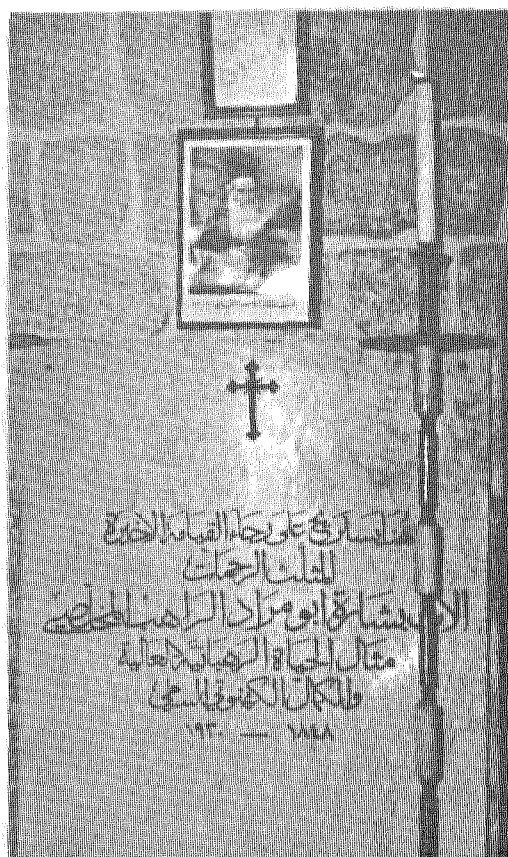 هنا يستريح على رجاء القيامة الاخيرة
المثلث الرحمات
الاب بشارة ابو مراد الراهب المخلصي
مثال الحياة الرهبانية
والكمال الكهنوتي
١٨٤٨ — ١٩٣٠